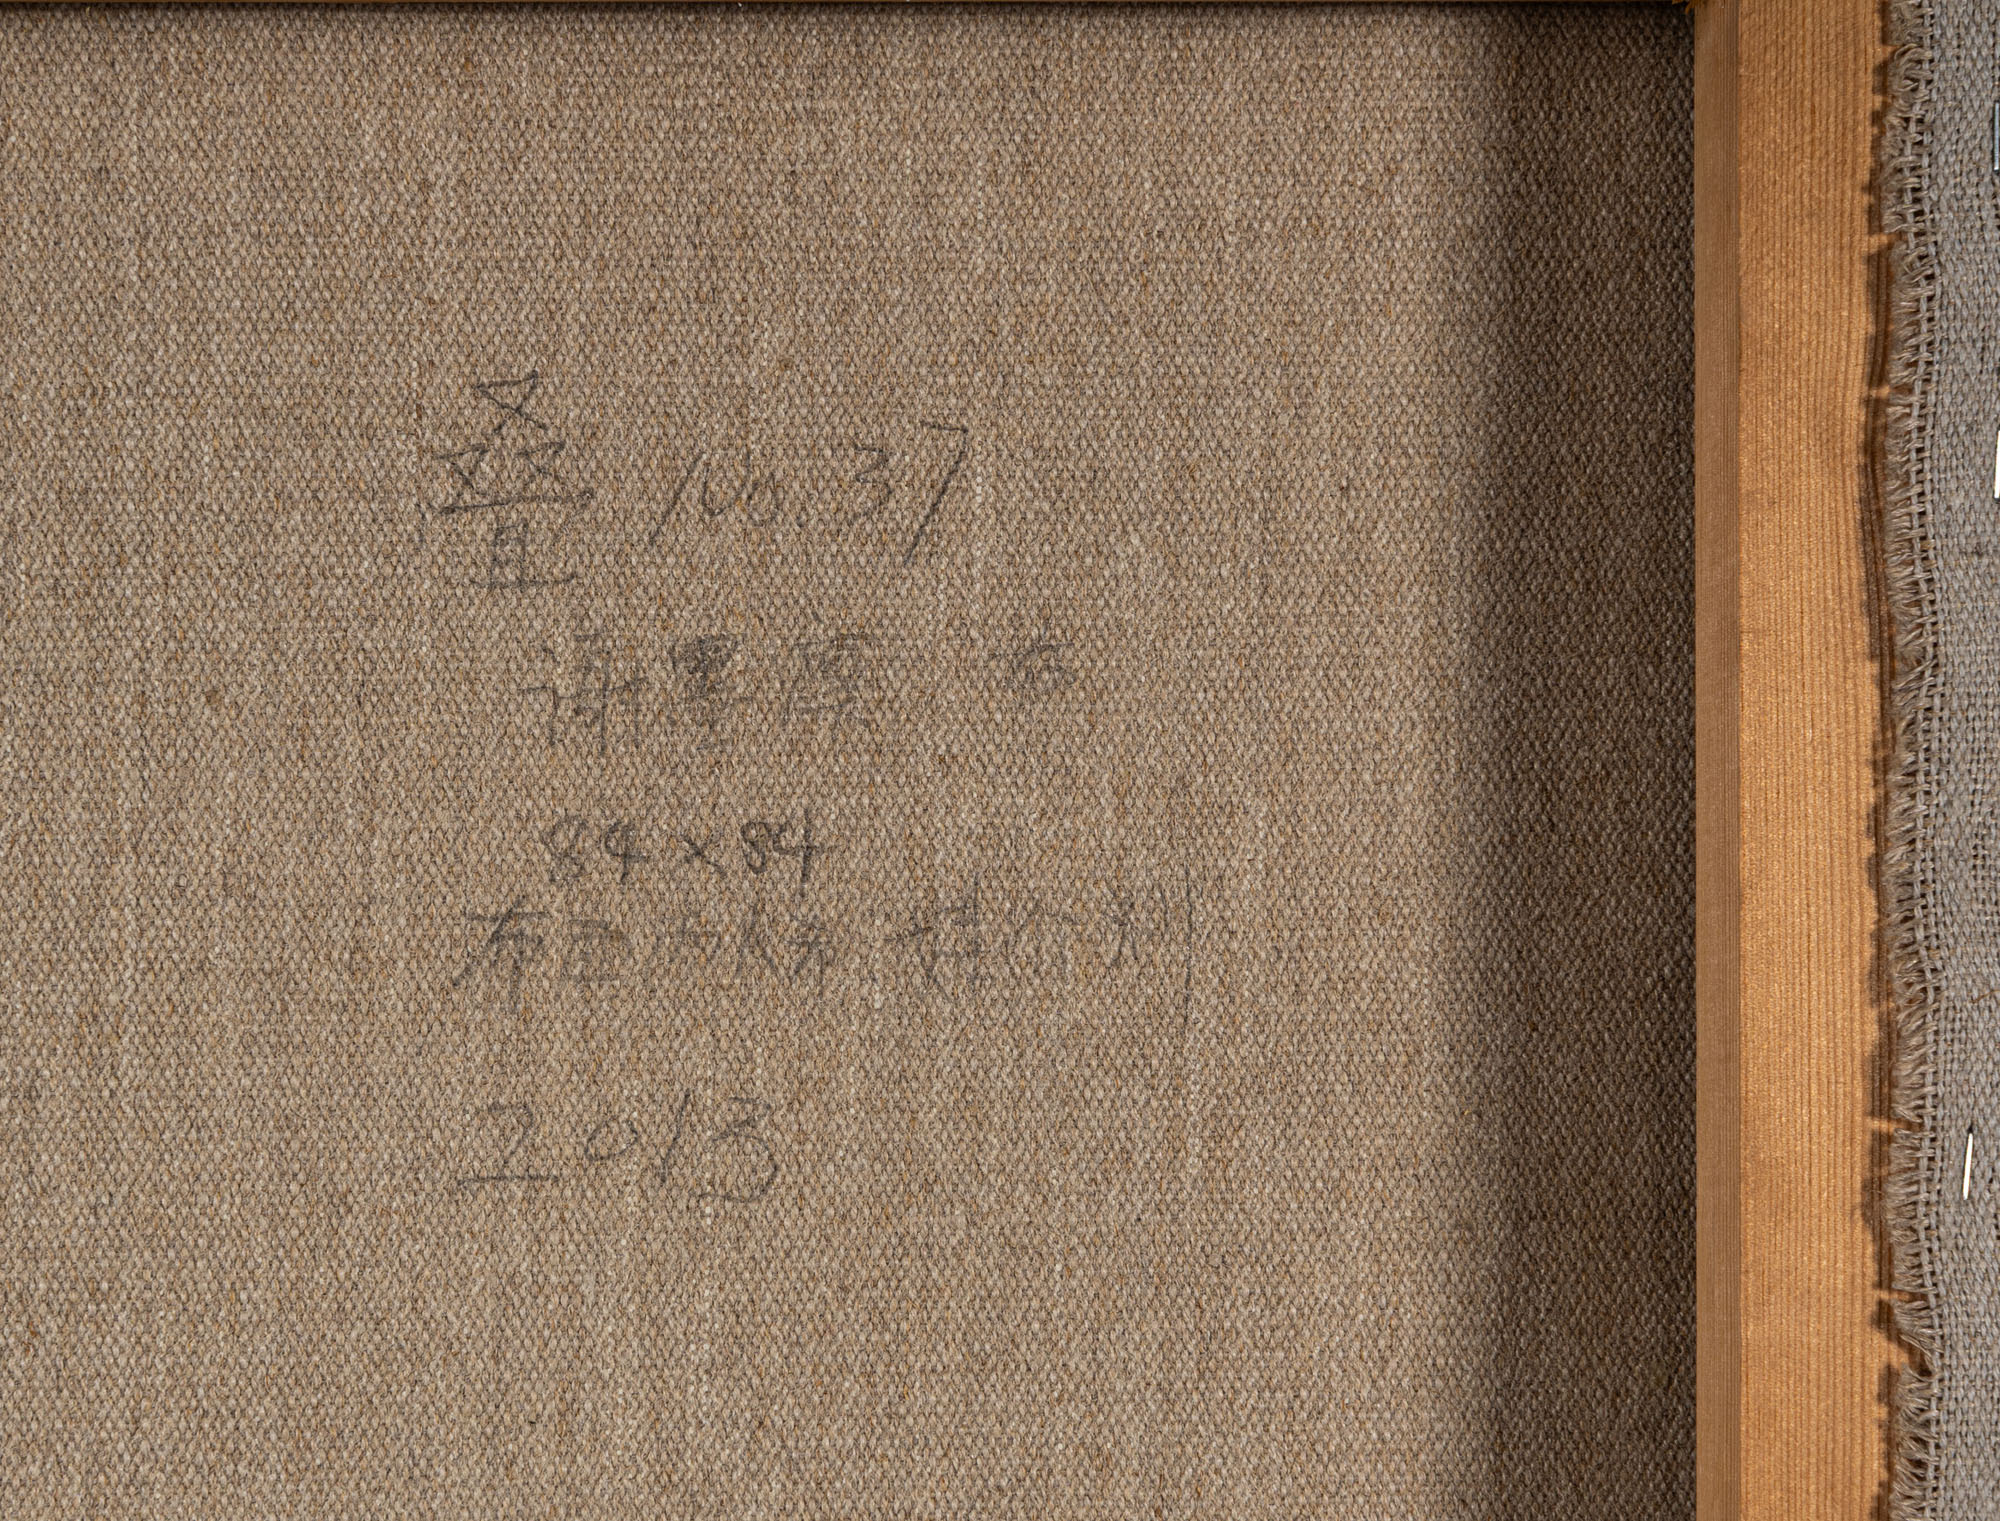 叠 No.37
谢墨凛
84×84
布面丙烯
2013